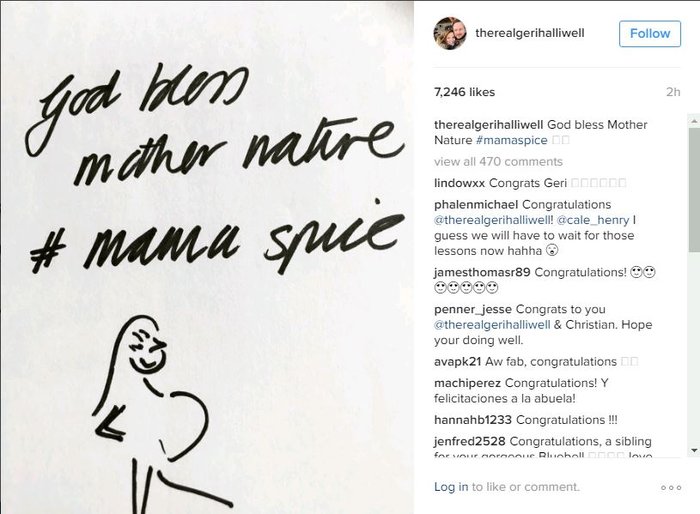 God bless
mother nature
# mama spice
therealgerihalliwell
Follow
7,246 likes
2h
therealgerihalliwell God bless Mother
Nature #mamaspice
view all 470 comments
lindowxx Congrats Geri
phalenmichael Congratulations
@therealgerihalliwell! @cale_henry I
guess we will have to wait for those
lessons now hahha
jamesthomasr89 Congratulations!
penner_jesse Congrats to you
@therealgerihalliwell & Christian. Hope
your doing well.
avapk21 Aw fab, congratulations
machiperez Congratulations! Y
felicitaciones a la abuela!
hannahb1233 Congratulations !!!
jenfred2528 Congratulations, a sibling
for your gorgeous Bluebell love
Log in to like or comment.